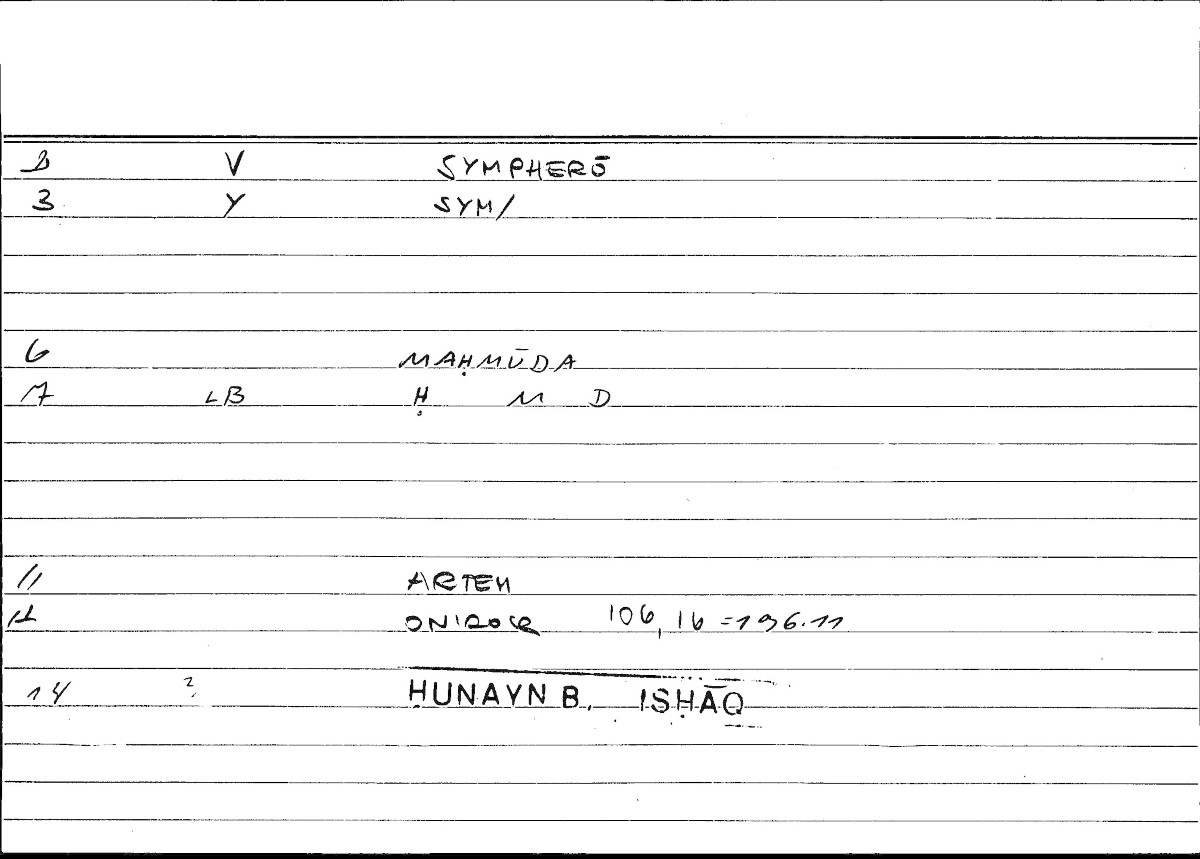 2 V SYMPHERŌ
3 Y SYM/
6 MAḤMŪDA
7 LB Ḥ M D
11 ARTEM
12 ONIROCR 106,16=196.11
14 ?, ḤUNAYN B. ISḤĀQ